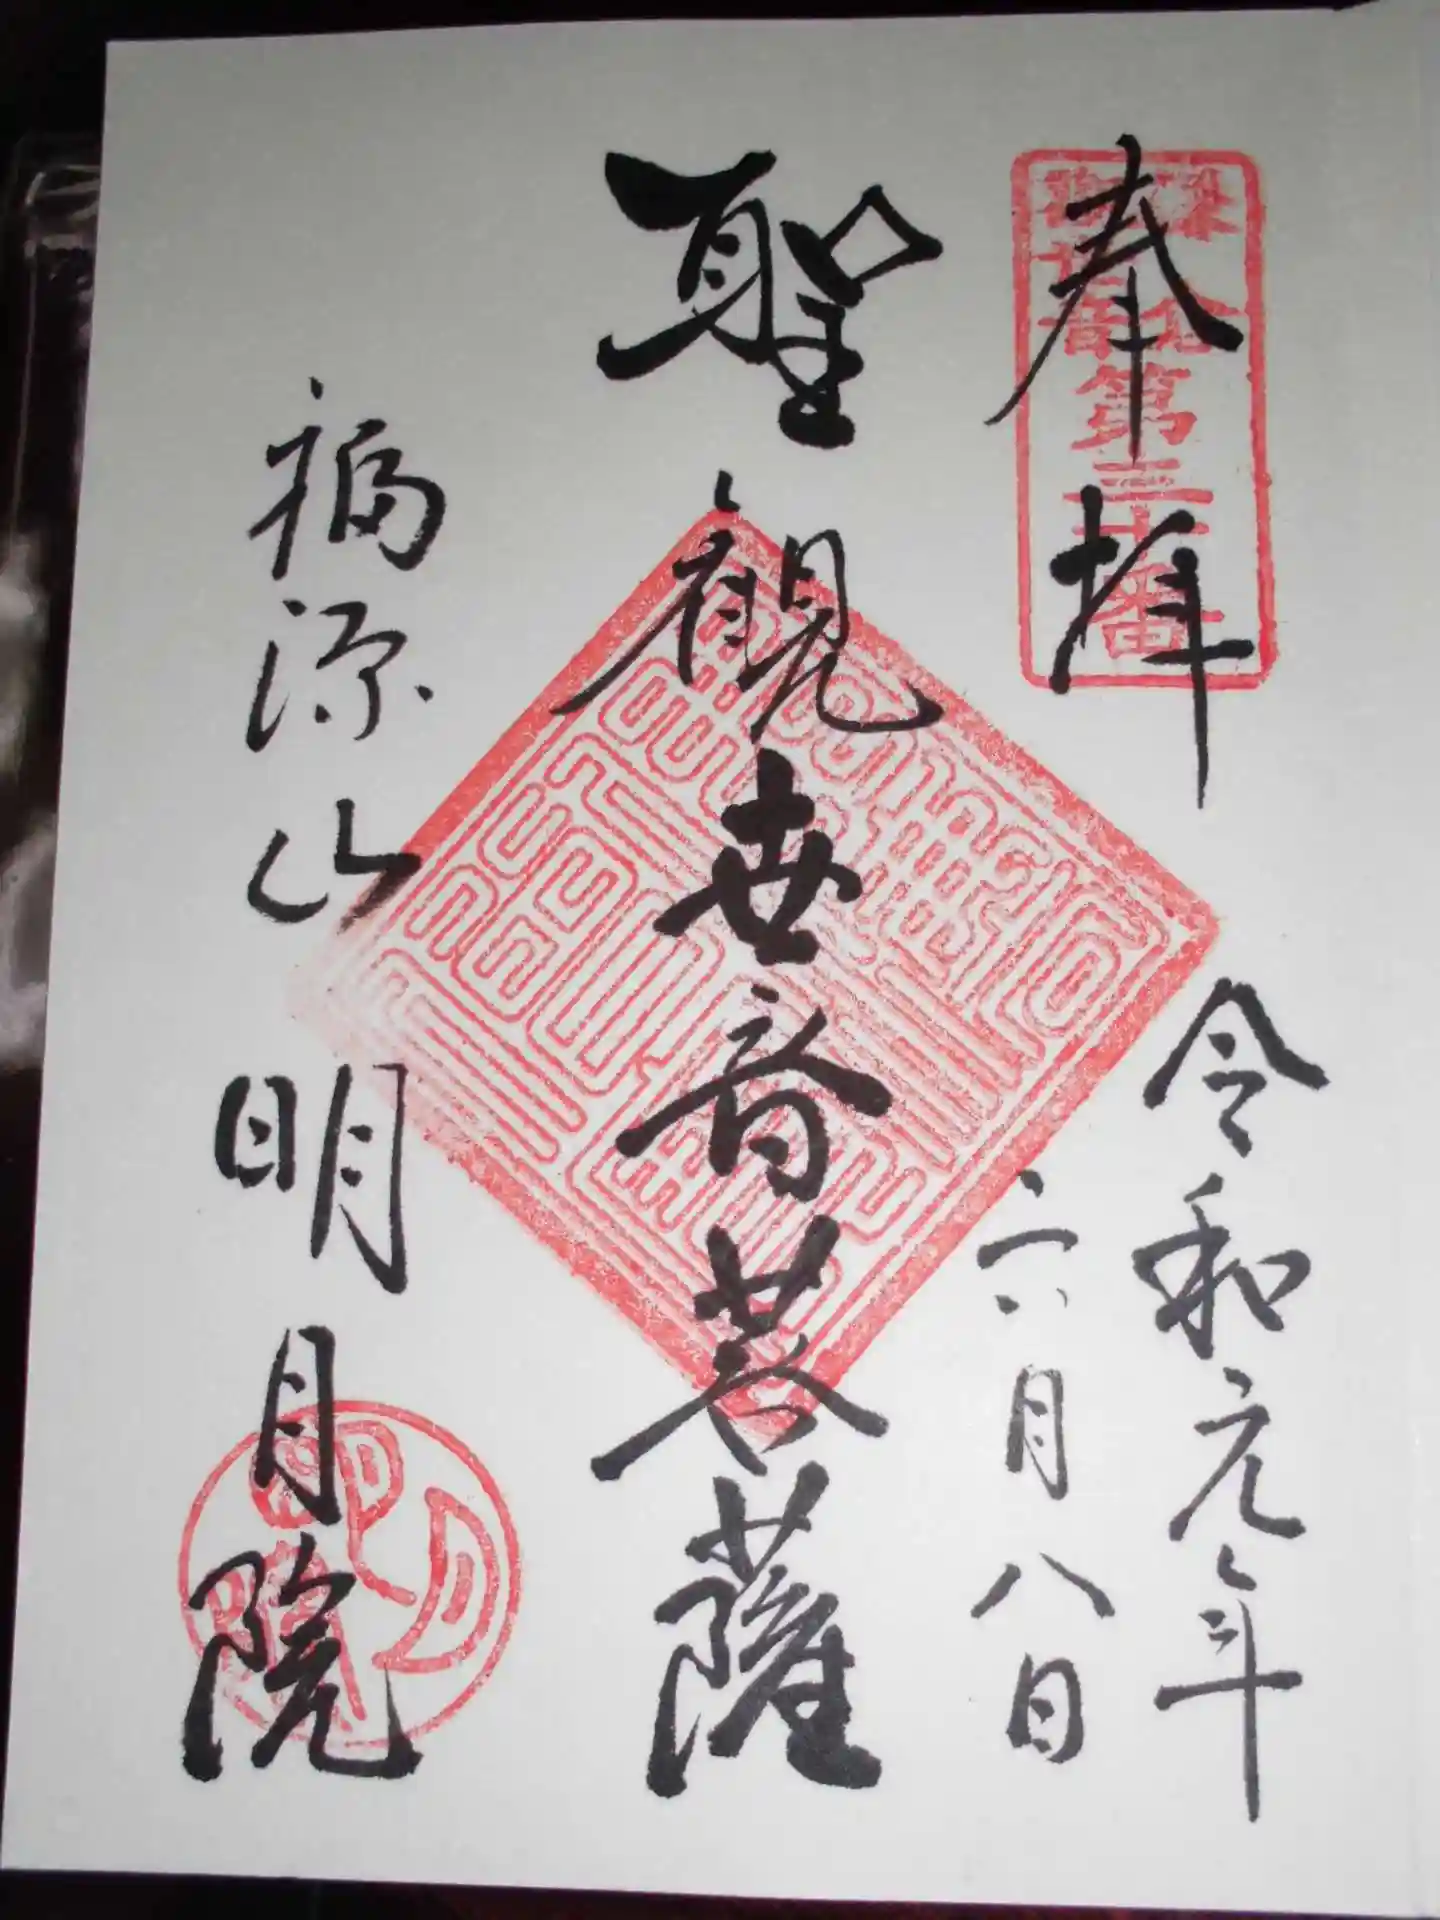 奉拝
鎌倉
観世音
第三十番
令和元年
六月八日
聖観世音菩薩
福源山明月院
明月院